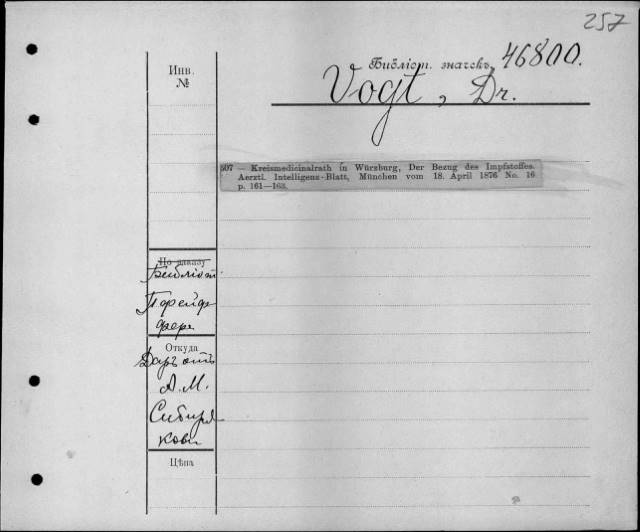 257
Инв. №
Библіот. значекъ 46800.
Vogt, Dr.
507 — Kreismedicinalrath in Würzburg, Der Bezug des Impfstoffes.
Aerztl. Intelligenz-Blatt, München vom 18. April 1876 No. 16
p. 161—163.
По заказу
Библіот.
Пфейф
фера
Откуда
Даръ отъ
А. М.
Сибиря
кова
Цѣна